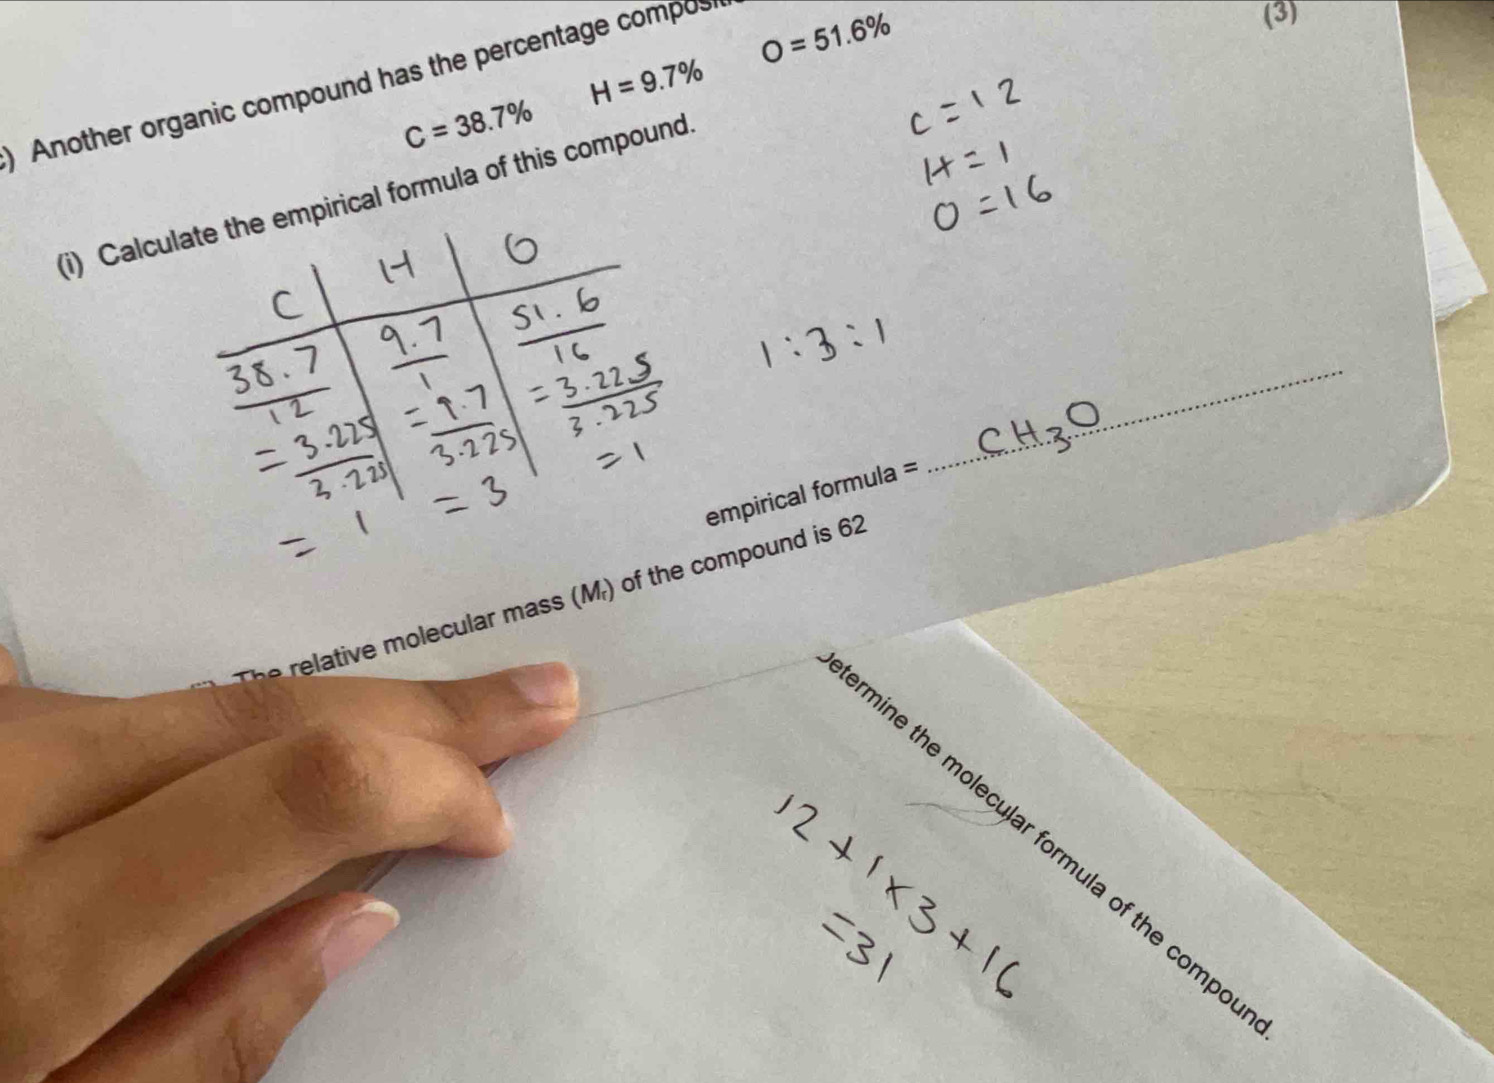 (3)
c) Another organic compound has the percentage
C = 38.7% H = 9.7% O = 51.6%
(i) Calculate the empirical formula of this compound.
C = 12
H = 1
O = 16
C | H | O
38.7/12 | 9.7/1 | 51.6/16
= 3.225/3.225 | = 9.7/3.225 | = 3.225/3.225
= 1 | = 3 | = 1
1 : 3 : 1
empirical formula = CH₃O
The relative molecular mass (Mᵣ) of the compound is 62
Determine the molecular formula of the compound.
12 + 1 × 3 + 16
= 31